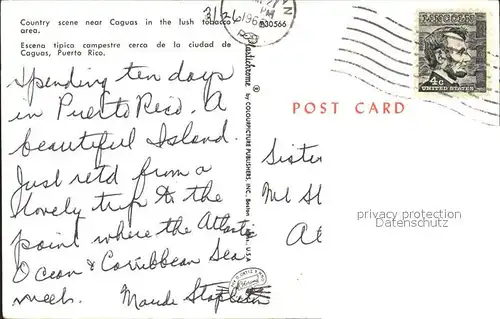 Country scene near Caguas in the lush tobacco
area.
Escena tipica campestre cerca de la ciudad de
Caguas, Puerto Rico.
3/26
196
PM
P30566
Plastichrome ® by COLOURPICTURE PUBLISHERS, INC., Boston
POST CARD
LINCOLN
4c
UNITED STATES
Spending ten days
in Puerto Rico. A
beautiful Island.
Just retd from a
lovely trip to the
point where the Atlantic
Ocean & Carribbean Sea
meet. Maude Stapleton
Sister
Mt St
privacy protection
Datenschutz